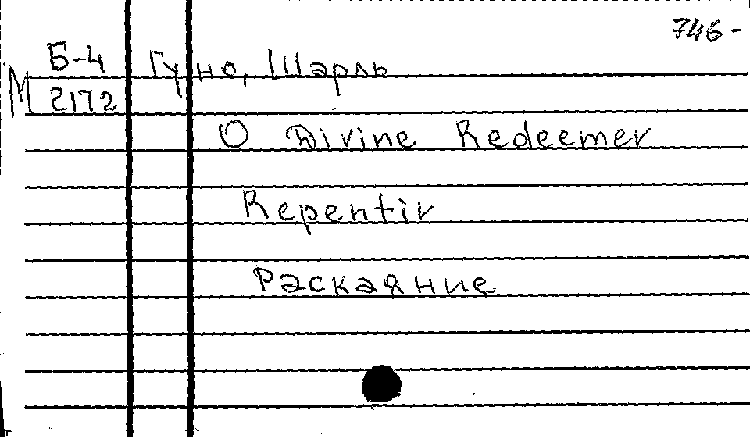 746-
Б-4 Гуно, Шарль
М 2172
O Divine Redeemer
Repentir
Раскаяние